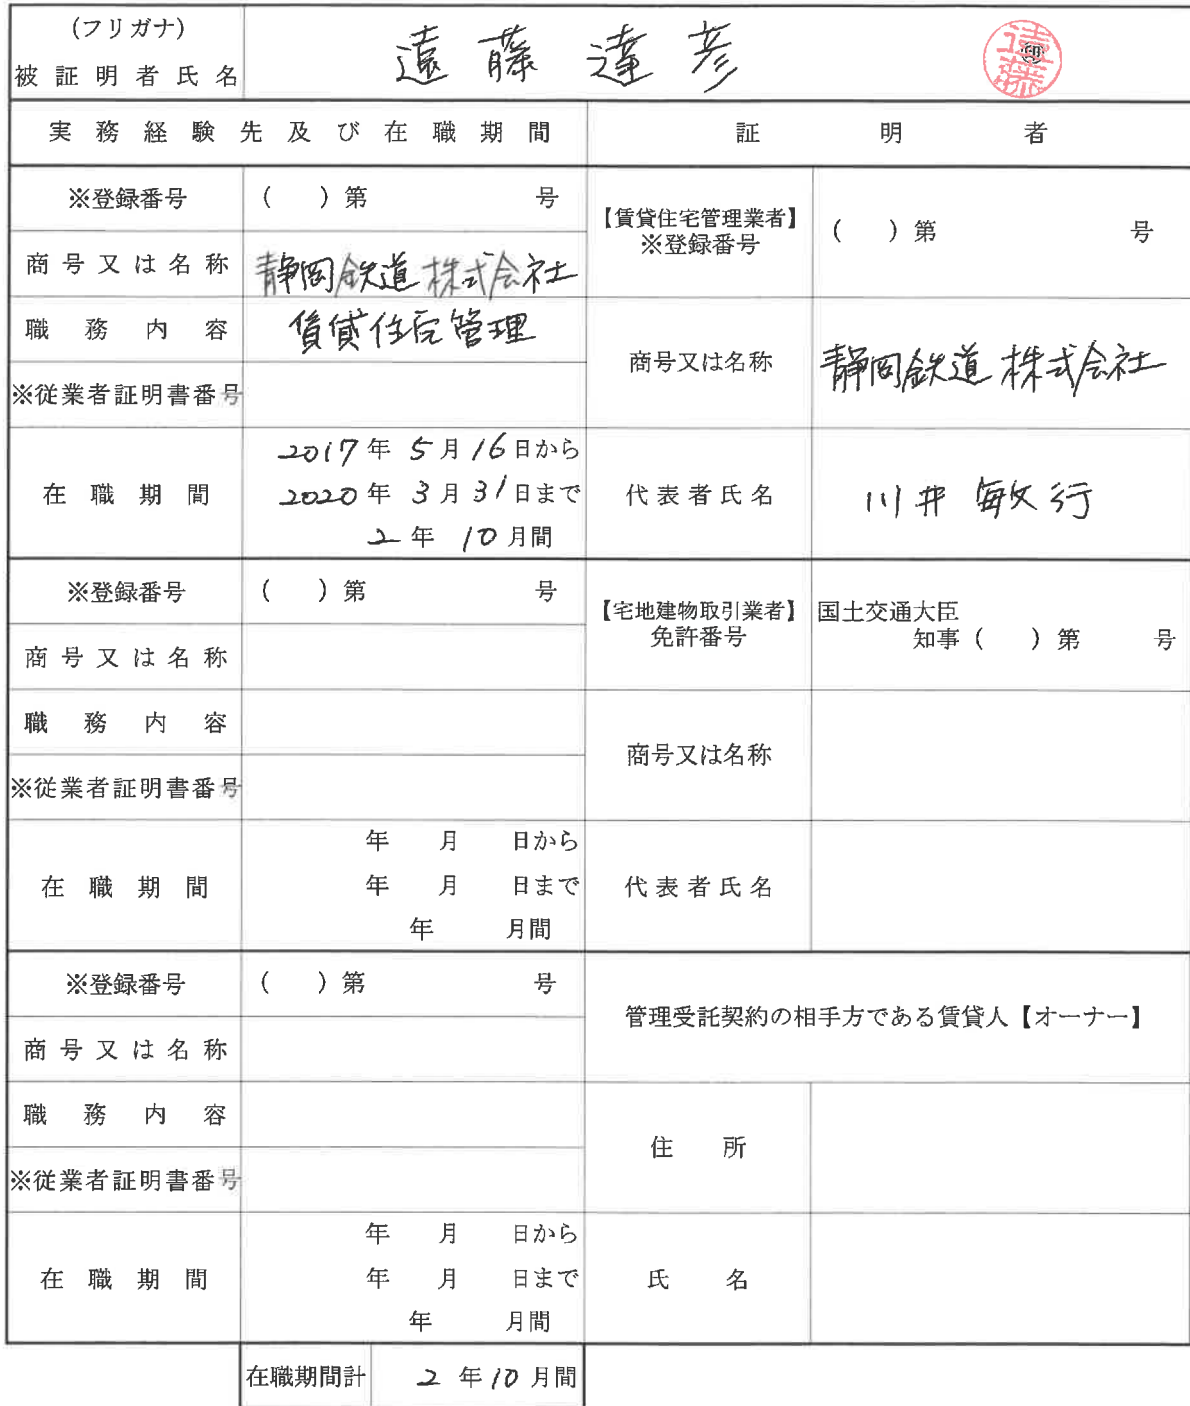 (フリガナ)
被証明者氏名 遠藤 達彦 ㊞ 遠藤
実務経験先及び在職期間 証明者
※登録番号 ( ) 第 号
商号又は名称 静岡鉄道株式会社
職務内容 賃貸住宅管理
※従業者証明書番号
在職期間 2017年 5月 16日から
2020年 3月 31日まで
2年 10月間
【賃貸住宅管理業者】
※登録番号 ( ) 第 号
商号又は名称 静岡鉄道株式会社
代表者氏名 川井 敏行
※登録番号 ( ) 第 号
商号又は名称
職務内容
※従業者証明書番号
在職期間 年 月 日から
年 月 日まで
年 月間
【宅地建物取引業者】 国土交通大臣
免許番号 知事 ( ) 第 号
商号又は名称
代表者氏名
※登録番号 ( ) 第 号
商号又は名称
職務内容
※従業者証明書番号
在職期間 年 月 日から
年 月 日まで
年 月間
管理受託契約の相手方である賃貸人【オーナー】
住所
氏名
在職期間計 2年10月間